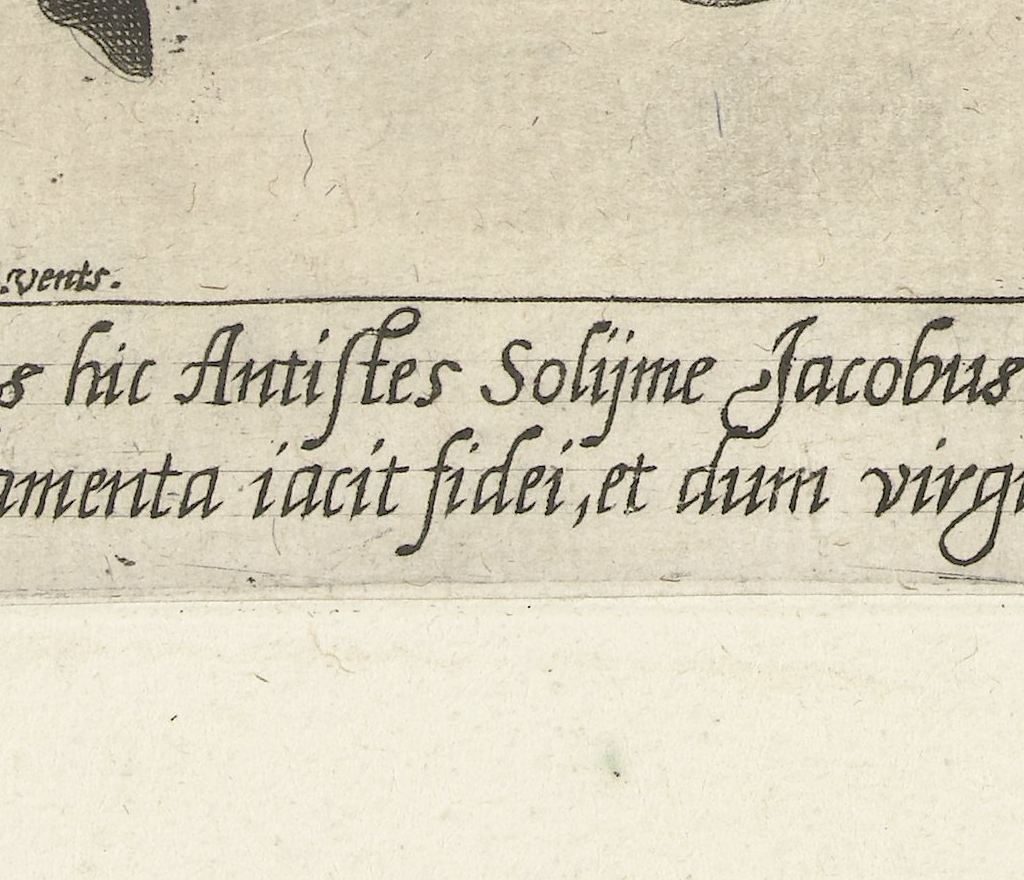 .vents.
s hic Antiſtes Solijme Jacobus
amenta iacit fidei, et dum virgi